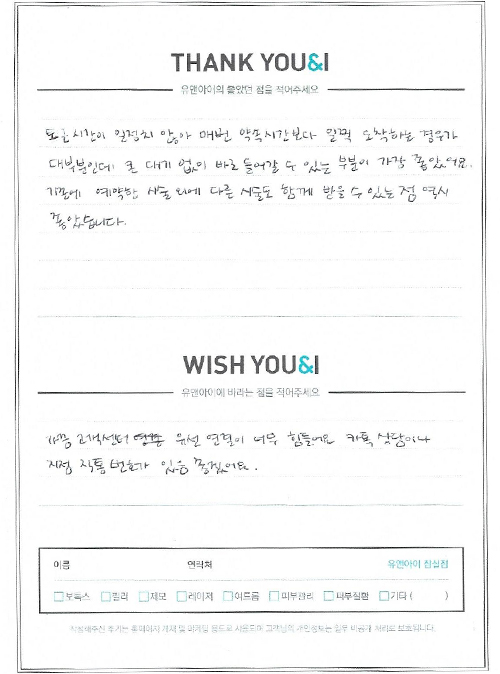 THANK YOU&I
유앤아이의 좋았던 점을 적어주세요
퇴근시간이 일정치 않아 매번 약속시간보다 일찍 도착하는 경우가
대부분인데 큰 대기 없이 바로 들어갈 수 있는 부분이 가장 좋았어요.
기존에 예약한 시술 외에 다른 시술도 함께 받을 수 있는 점 역시
좋았습니다.
WISH YOU&I
유앤아이에 바라는 점을 적어주세요
가끔 고객센터 유선 연결이 너무 힘들어요 카톡 상담이나
지점 직통 번호가 있음 좋겠어요.
이름 연락처 유앤아이 잠실점
보톡스 필러 제모 레이저 여드름 피부관리 피부질환 기타 ( )
작성해주신 후기는 홈페이지 게재 및 마케팅 용도로 사용되며 고객님의 개인정보는 일부 비공개 처리로 보호됩니다.